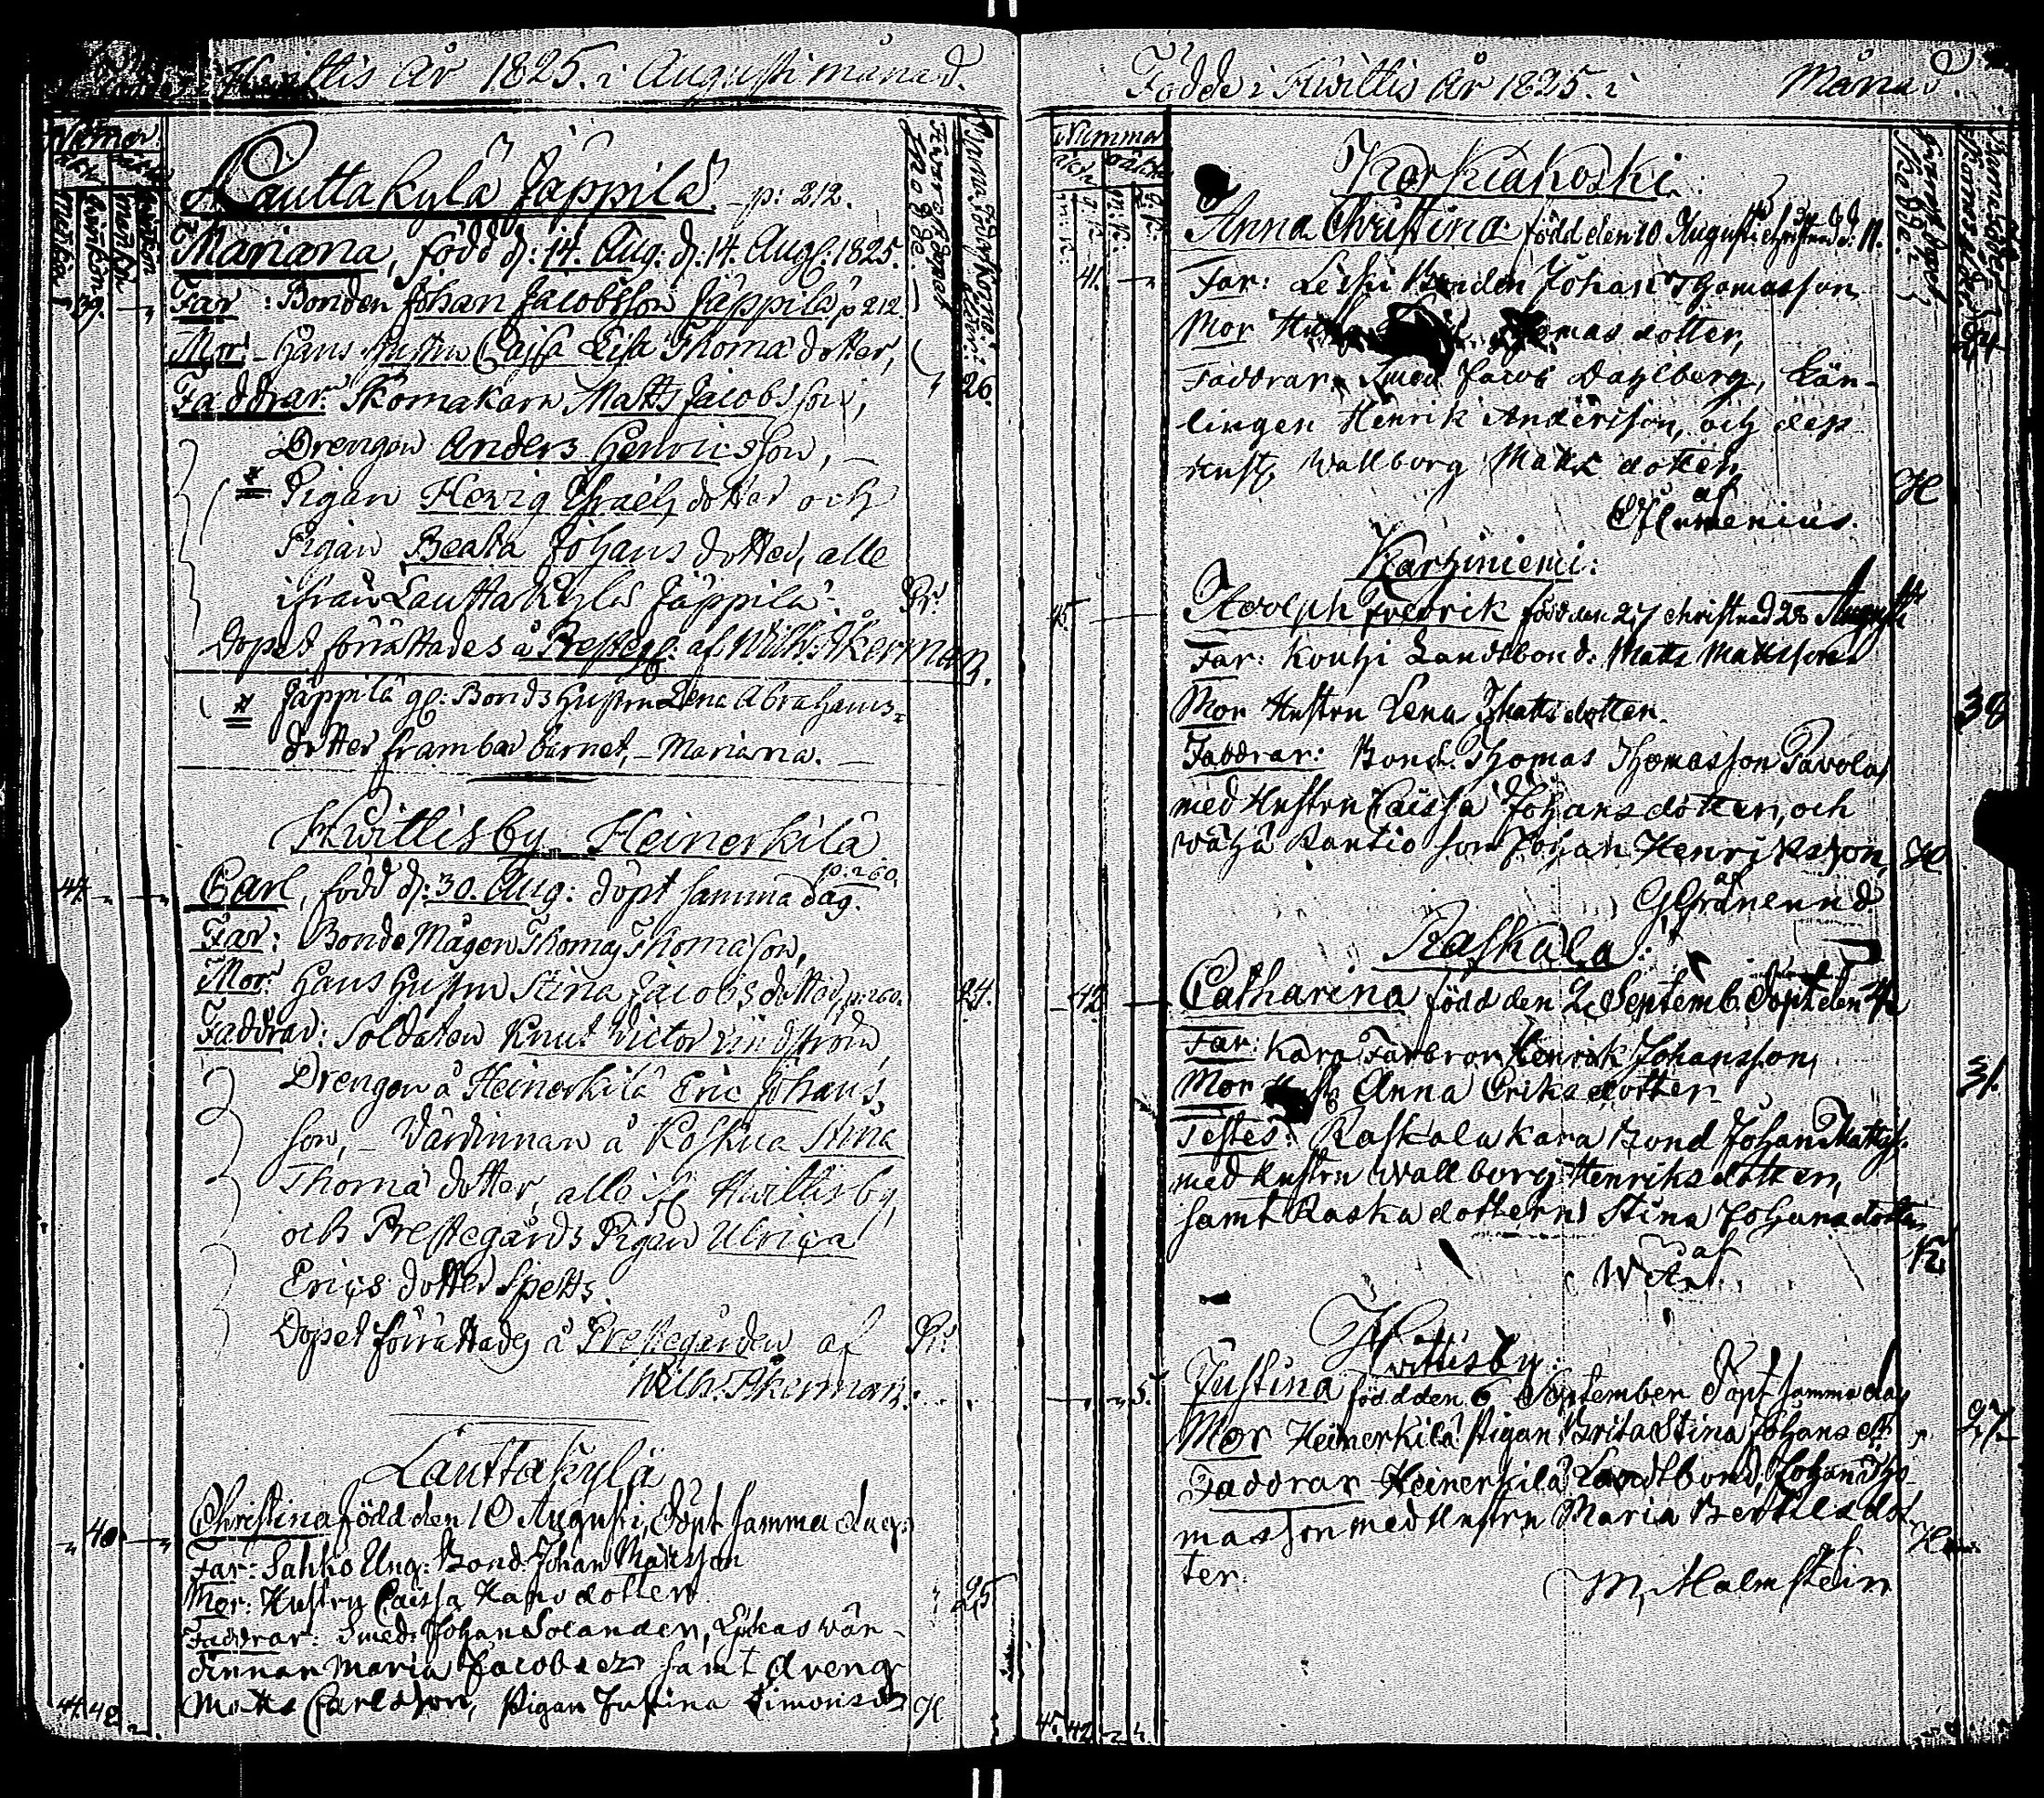 Hvittis År 1825. i Augusti månad.
Numor
Lauttakylä Jäppilä. p: 212.
Mariana, född d: 14. Aug. d. 14. Aug. 1825.
39.
Far: Bonden Johan Jacobsson Jäppilä p 212.
Mor: Hans Hustru Caisa Lisa Thoma dotter,
26.
Faddrar: Skomakarn Matts Jacobsson,
Drengen Anders Henricsson,
* Pigan Hevig Israels dotter och
Pigan Beata Johans dotter, alle
ifrån Lauttakylä Jäppilä. Pr.
Dopet förrättades å Presteg: af Wilh. Åkerman.
* Jäppilä gl: Bonds Hustru Lena Abrahams-
dotter frambar barnet, Mariana.
Hvittisby Heinerkilä
p. 260.
44. Carl, född d: 30. Aug: döpt samma dag.
Far: Bonde Mågen Thomas Thomason,
Mor: Hans Hustru Stina Jacobs dotter, p. 260. 24.
Faddrar: Soldaten Knut Victor Lindström
Drengen å Heinerkilä Eric Johans
son, Värdinnan å Koskua Stina
Thoma dotter, alle Hvittisby
och Prestegårds Pigan Ulrica
Erics dotter Spetts.
Dopet förrättades å Prestegården af Pr.
Wilh. Åkerman.
Lauttakylä
Christina född den 10 Augusti, döpt samma dag:
40
Far: Sahko Ung: Bond. Johan Matsson
Mor: Hustru Caisa Hans dotter. 25
Faddrar: Smed: Johan Solander, wär-
dinnan Maria Jacobs dr samt dreng
Matts Carlsson, Pigan Justina Simonsdr H
44. 42
Födde i Hvittis År 1825. i Månad.
Nummer
Korkiakoski.
Anna Christina född den 10 Augusti christnad d. 11.
41. Far: Bonden Johan Thomasson
Mor mas dotter, 34
Faddrar: Smed Jacob Dahlberg, Län-
lingen Henrik Andersson, och dess
hust. Wallborg Matts dotter H
af
Karhiniemi:
45. Adolph Fredrik född den 27 christnad 28 Augusti
Far: Kouhi Landtbond: Matts Mattsson
Mor Hustru Lena Matts dotter. 38
Faddrar: Bond. Thomas Thomasson Pavola,
med Hustru Caissa Johans dotter, och
wähä Rantio son Johan Henriksson, H
af
G Granlund
Raskala:
42 Catharina född den 2 Septemb. döpt den 4
Far: Kara Farbror Henrik Johansson, 31.
Mor Anna Eriks dotter
Testes: Raskala kara Bond Johan Matts.
med hustru Wallborg Henriks dotter,
samt Raska dottern Stina Johans dotter
af K
Hvittisby:
5 Justina född den 6 September döpt samma dag
Mor Heinerkilä Pigan Brita Stina Johans dr 27.
Faddrar Heinerkilä Landtbond. Johan Tho
masson med Hustru Maria Bertils dot
ter. af H
M, Malmstein
45. 42.